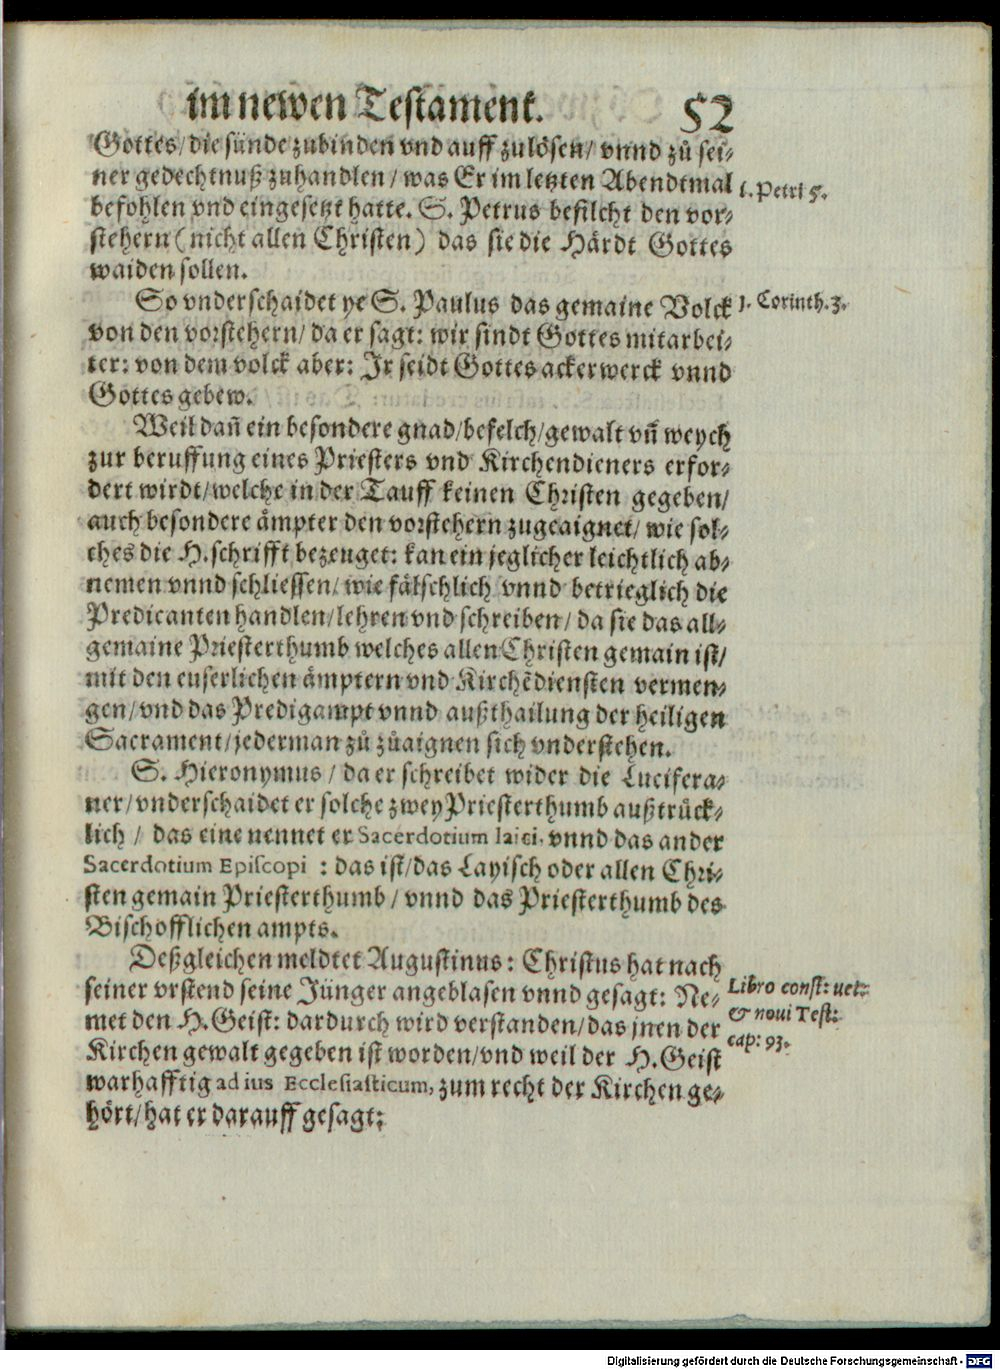 im newen Testament. 52
Gottes/ die sünde zubinden vnd auff zulösen/ vnnd zů sei-
ner gedechtnuß zuhandlen/ was Er im letzten Abendtmal
1. Petri 5.
befohlen vnd eingesetzt hatte. S. Petrus befilcht den vor-
stehern (nicht allen Christen) das sie die Härdt Gottes
waiden sollen.
So vnderschaidet ye S. Paulus das gemaine Volck
1. Corinth. 3.
von den vorstehern/ da er sagt: wir sindt Gottes mitarbei-
ter: von dem volck aber: Jr seidt Gottes ackerwerck vnnd
Gottes gebew.
Weil dañ ein besondere gnad/befelch/gewalt vñ weych
zur beruffung eines Priesters vnd Kirchendieners erfor-
dert wirdt/welche in der Tauff keinen Christen gegeben/
auch besondere ämpter den vorstehern zugeaignet/ wie sol-
ches die H. schrifft bezeuget: kan ein jeglicher leichtlich ab-
nemen vnnd schliessen/ wie fälschlich vnnd betrieglich die
Predicanten handlen/lehren vnd schreiben/ da sie das all-
gemaine Priesterthumb welches allen Christen gemain ist/
mit den euserlichen ämptern vnd Kirchẽdiensten vermen-
gen/ vnd das Predigampt vnnd außthailung der heiligen
Sacrament/jederman zů zůaignen sich vnderstehen.
S. Hieronymus / da er schreibet wider die Lucifera-
ner/ vnderschaidet er solche zwey Priesterthumb außtrück-
lich / das eine nennet er Sacerdotium laici, vnnd das ander
Sacerdotium Episcopi : das ist/das Layisch oder allen Chri-
sten gemain Priesterthumb / vnnd das Priesterthumb des
Bischofflichen ampts.
Deßgleichen meldtet Augustinus: Christus hat nach
seiner vrstend seine Jünger angeblasen vnnd gesagt: Ne-
Libro const: uet:
& noui Test:
cap: 93.
met den H. Geist: dardurch wird verstanden/ das jnen der
Kirchen gewalt gegeben ist worden/vnd weil der H. Geist
warhafftig ad ius Ecclesiasticum, zum recht der Kirchen ge-
hört/ hat er darauff gesagt:
Digitalisierung gefördert durch die Deutsche Forschungsgemeinschaft - DFG